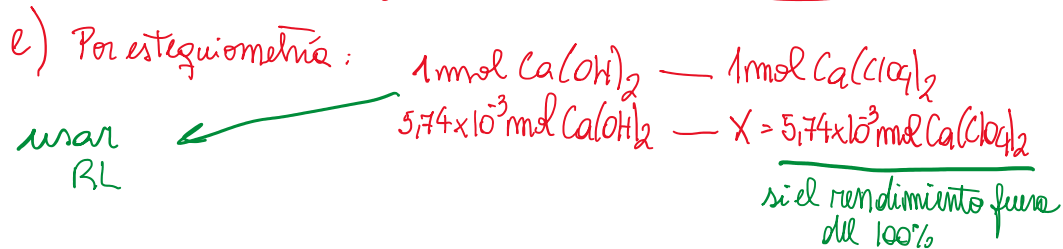 e) Por estequiometría:
1 mol Ca(OH)₂ — 1 mol Ca(ClO₄)₂
5,74x10⁻³ mol Ca(OH)₂ — X = 5,74x10⁻³ mol Ca(ClO₄)₂
usar
RL
si el rendimiento fuera
del 100%